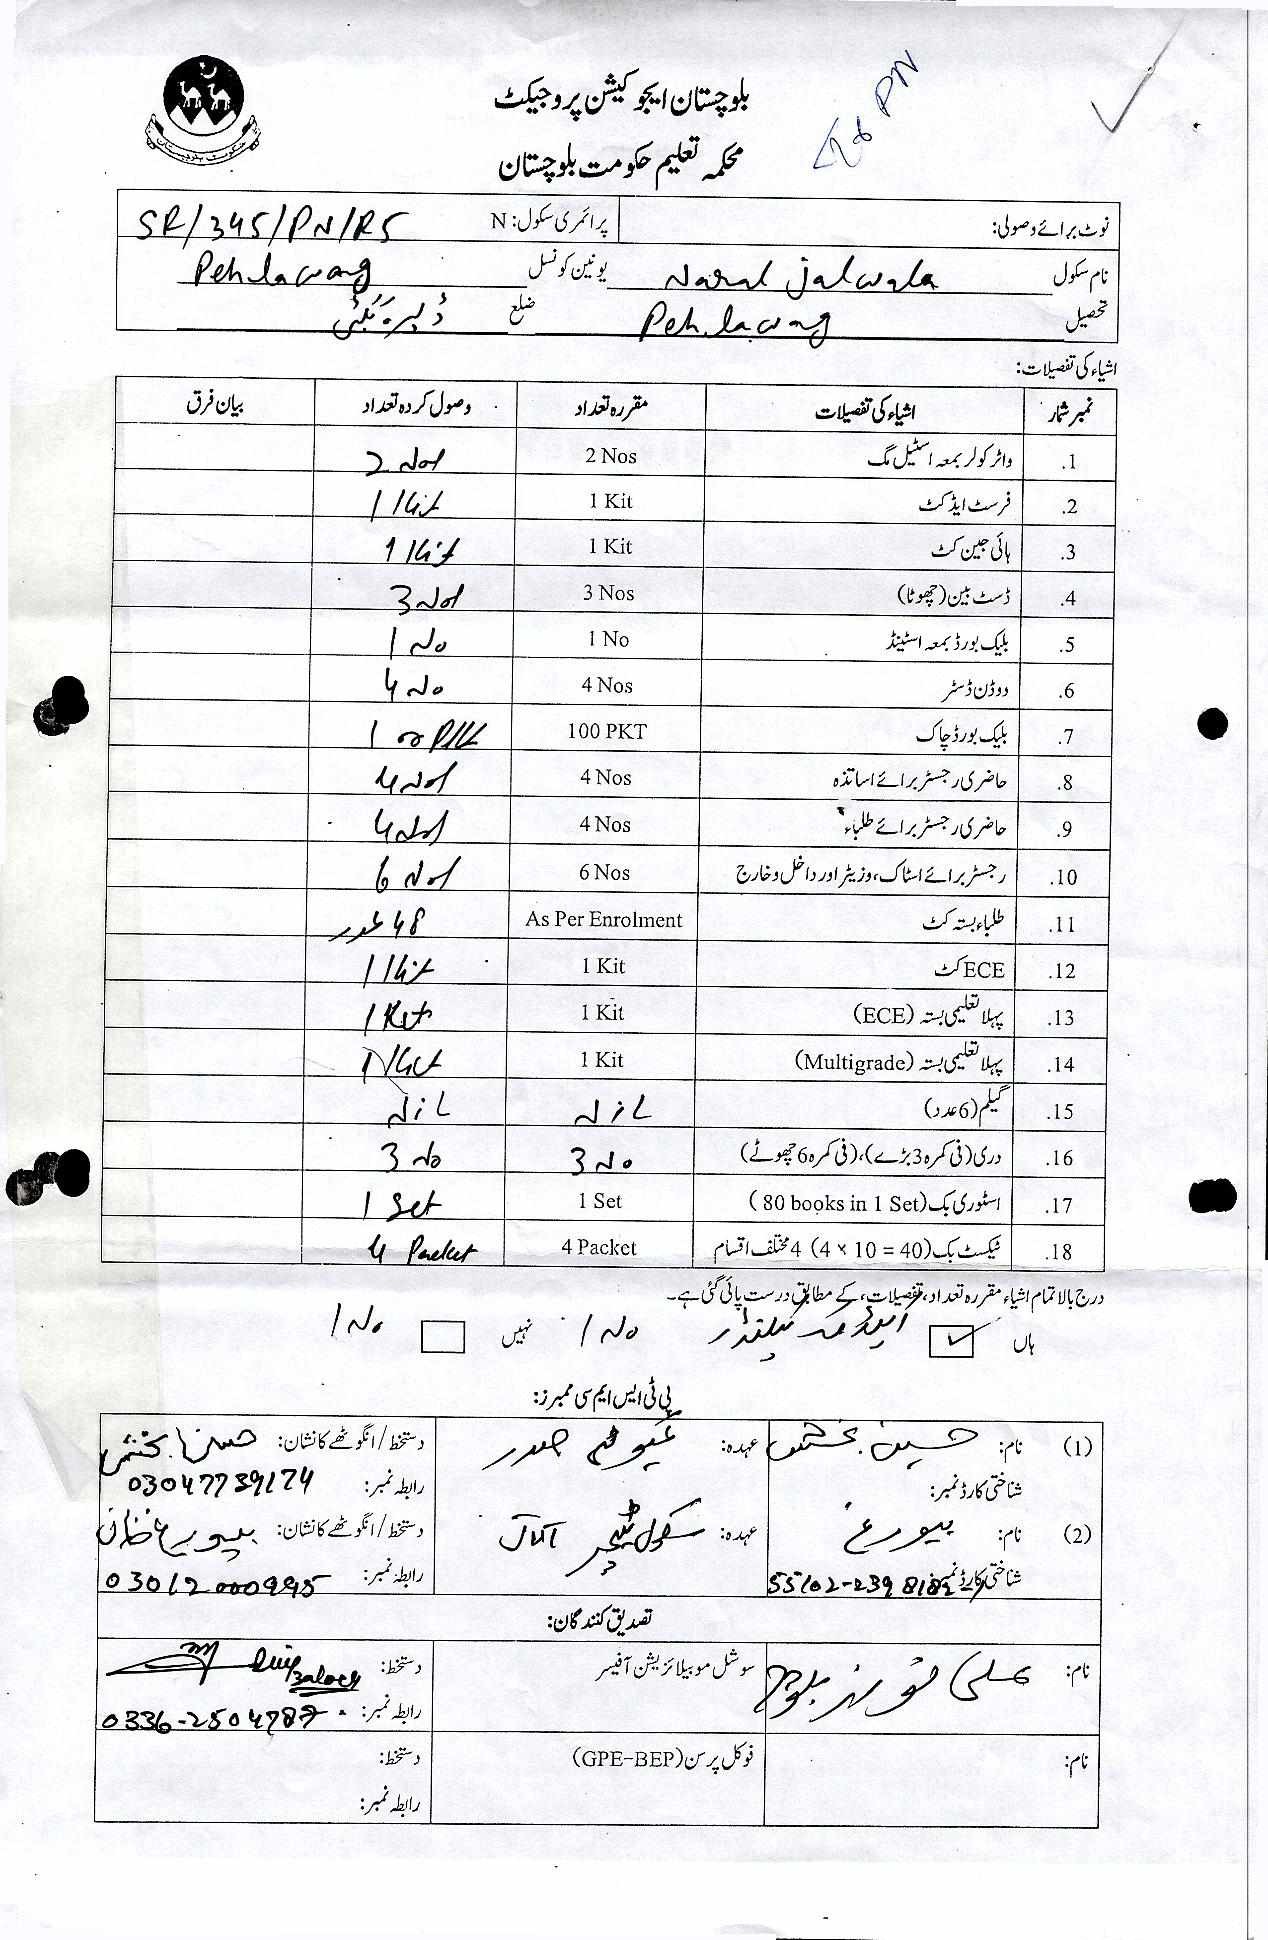 بلوچستان ایجوکیشن پروجیکٹ
محکمہ تعلیم حکومت بلوچستان
PN
حکومت بلوچستان
نوٹ برائے وصولی: پرائمری سکول: N SR/345/PN/RS
نام سکول Naral Jalwala یونین کونسل Pehlawang
تحصیل Pehlawang ضلع ڈیرہ بگٹی
اشیاء کی تفصیلات:
نمبر شمار اشیاء کی تفصیلات مقررہ تعداد وصول کردہ تعداد بیان فرق
1. واٹر کولر بمعہ اسٹیل مگ 2 Nos 2 Nos
2. فرسٹ ایڈ کٹ 1 Kit 1 Kit
3. ہائی جین کٹ 1 Kit 1 Kit
4. ڈسٹ بین (چھوٹا) 3 Nos 3 Nos
5. بلیک بورڈ بمعہ اسٹینڈ 1 No 1 No
6. ووڈن ڈسٹر 4 Nos 4 No
7. بلیک بورڈ چاک 100 PKT 100 PKK
8. حاضری رجسٹر برائے اساتذہ 4 Nos 4 Nos
9. حاضری رجسٹر برائے طلباء 4 Nos 4 Nos
10. رجسٹر برائے اسٹاک، وزیٹر اور داخل و خارج 6 Nos 6 Nos
11. طلباء بستہ کٹ As Per Enrolment 48 عدد
12. ECE کٹ 1 Kit 1 Kit
13. پہلا تعلیمی بستہ (ECE) 1 Kit 1 Kit
14. پہلا تعلیمی بستہ (Multigrade) 1 Kit 1 Kit
15. گیلم (6 عدد) Nil Nil
16. دری (فی کمرہ 3 بڑے)، (فی کمرہ 6 چھوٹے) 3 No 3 No
17. اسٹوری بک (80 books in 1 Set) 1 Set 1 Set
18. ٹیکسٹ بک (4 × 10 = 40) 4 مختلف اقسام 4 Packet 4 Packet
درج بالا تمام اشیاء مقررہ تعداد، تفصیلات، کے مطابق درست پائی گئی ہے۔
ہاں 1 No نہیں 1 No
پی ٹی ایس ایم سی ممبرز:
(1) نام: حسین بخش عہدہ: صدر دستخط/انگوٹھے کا نشان: حسن بخش
شناختی کارڈ نمبر: رابطہ نمبر: 03047739174
(2) نام: بیورغ عہدہ: سکول ٹیچر دستخط/انگوٹھے کا نشان: بیورغ خان
شناختی کارڈ نمبر: رابطہ نمبر: 03012000995
تصدیق کنندگان:
نام: علی نواز بلوچ سوشل موبیلائزیشن آفیسر دستخط: Baloch
رابطہ نمبر: 0336-2504787
نام: فوکل پرسن (GPE-BEP) دستخط:
رابطہ نمبر: